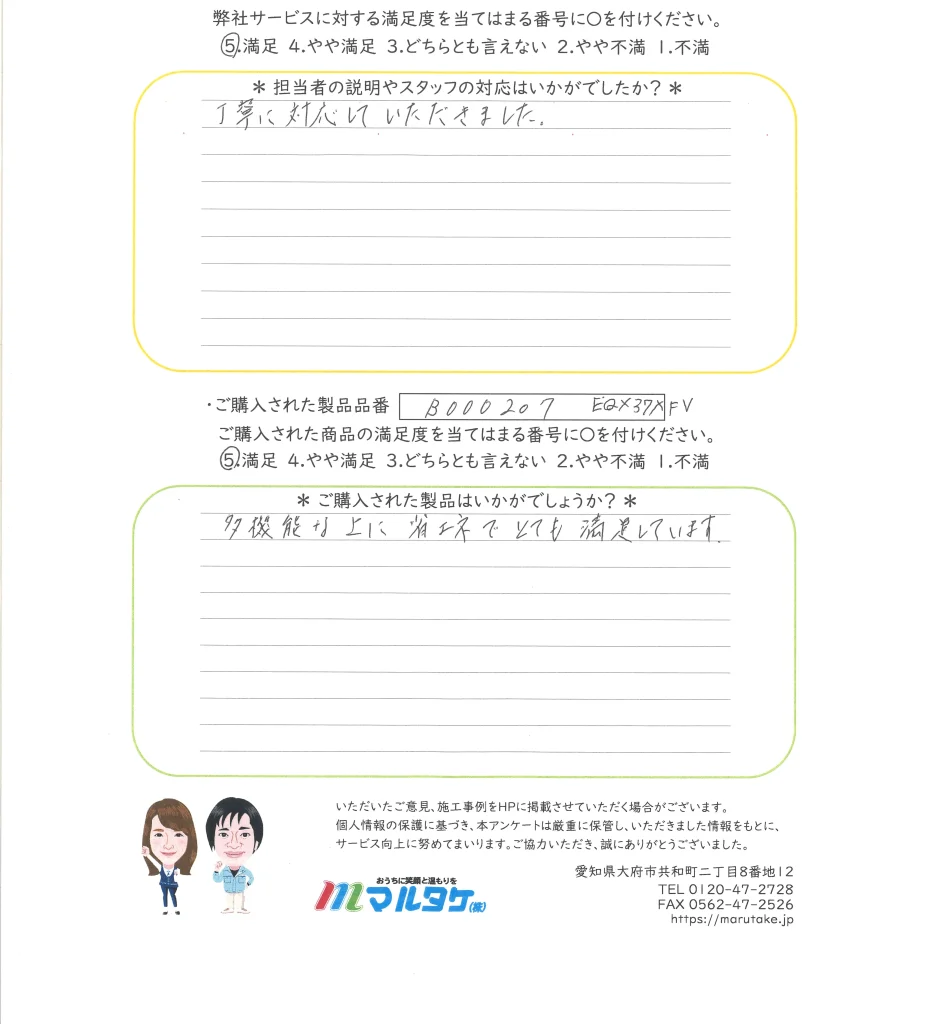 弊社サービスに対する満足度を当てはまる番号に〇を付けください。
5.満足 4.やや満足 3.どちらとも言えない 2.やや不満 1.不満
＊ 担当者の説明やスタッフの対応はいかがでしたか？ ＊
丁寧に対応していただきました。
・ご購入された製品品番 B000207 EQX37XFV
ご購入された商品の満足度を当てはまる番号に〇を付けください。
5.満足 4.やや満足 3.どちらとも言えない 2.やや不満 1.不満
＊ ご購入された製品はいかがでしょうか？ ＊
多機能な上に省エネでとても満足しています。
いただいたご意見、施工事例をHPに掲載させていただく場合がございます。
個人情報の保護に基づき、本アンケートは厳重に保管し、いただきました情報をもとに、
サービス向上に努めてまいります。ご協力いただき、誠にありがとうございました。
おうちに笑顔と温もりを
マルタケ(株)
愛知県大府市共和町二丁目8番地12
TEL 0120-47-2728
FAX 0562-47-2526
https://marutake.jp